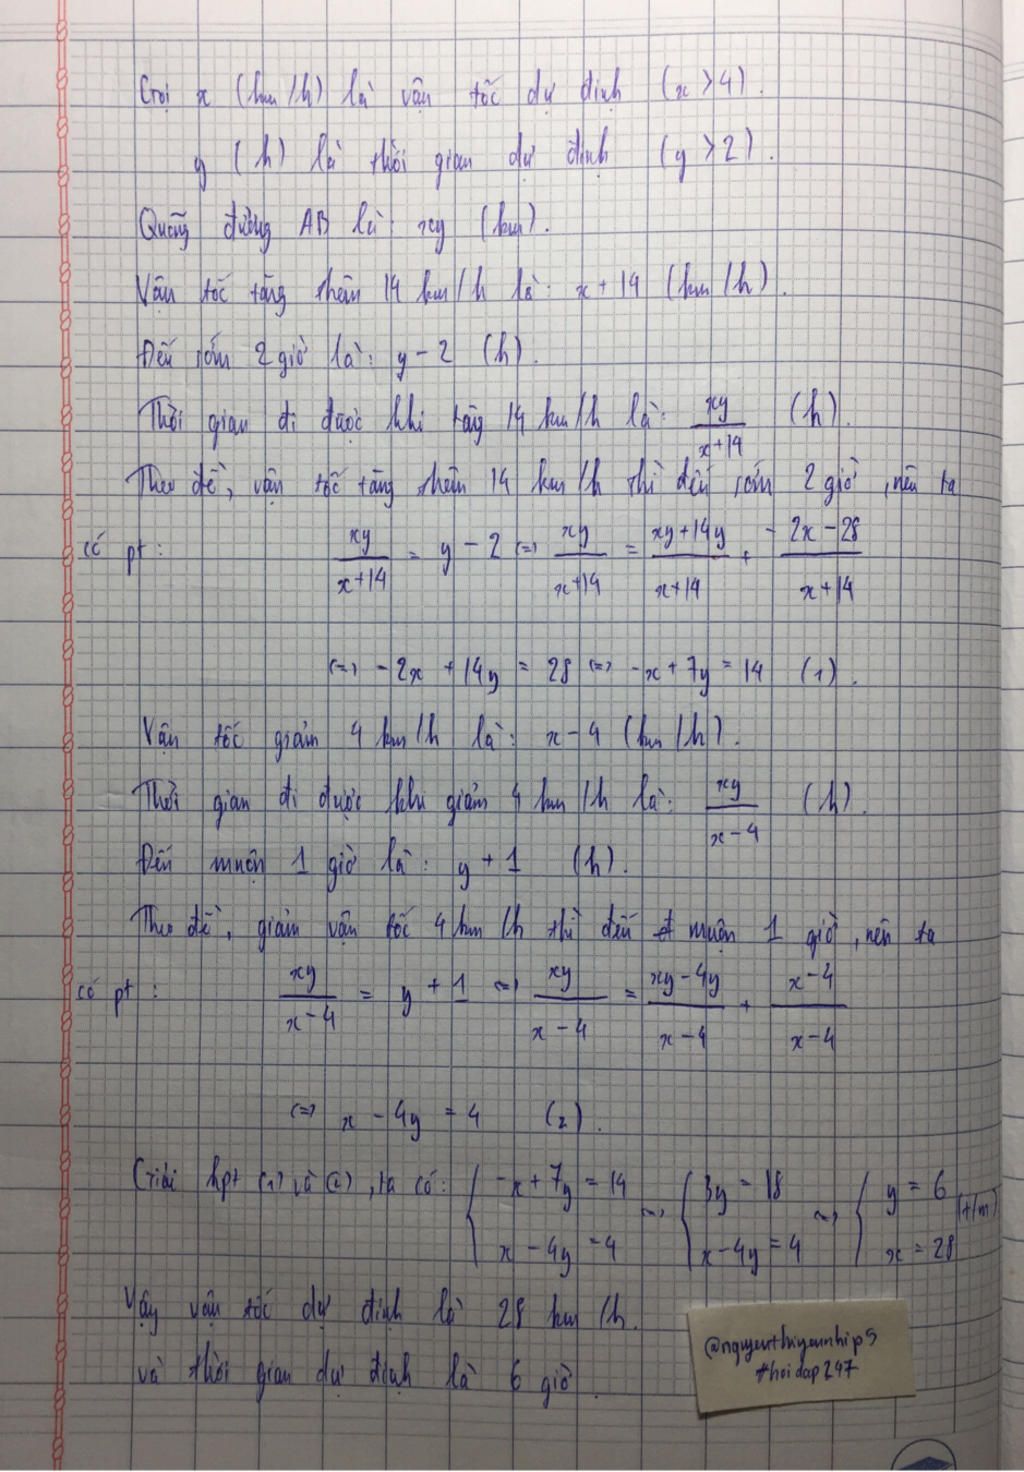 Gọi x (km/h) là vận tốc dự định (x > 4).
y (h) là thời gian dự định (y > 2).
Quãng đường AB là: xy (km).
Vận tốc tăng thêm 14 km/h là: x + 14 (km/h).
Đến sớm 2 giờ là: y - 2 (h).
Thời gian đi được khi tăng 14 km/h là: xy/(x+14) (h).
Theo đề, vận tốc tăng thêm 14 km/h thì đến sớm 2 giờ, nên ta
có pt: xy/(x+14) = y - 2 <=> xy/(x+14) = (xy+14y)/(x+14) + (-2x-28)/(x+14)
<=> -2x + 14y = 28 <=> -x + 7y = 14 (1).
Vận tốc giảm 4 km/h là: x - 4 (km/h).
Thời gian đi được khi giảm 4 km/h là: xy/(x-4) (h).
Đến muộn 1 giờ là: y + 1 (h).
Theo đề, giảm vận tốc 4 km/h thì đến muộn 1 giờ, nên ta
có pt: xy/(x-4) = y + 1 <=> xy/(x-4) = (xy-4y)/(x-4) + (x-4)/(x-4)
<=> x - 4y = 4 (2).
Giải hpt (1) và (2), ta có: { -x + 7y = 14 <=> { 3y = 18 <=> { y = 6 (t/m)
x - 4y = 4 x - 4y = 4 x = 28
Vậy vận tốc dự định là 28 km/h.
và thời gian dự định là 6 giờ.
@nguyenthiyeunhip5
#hoidap247